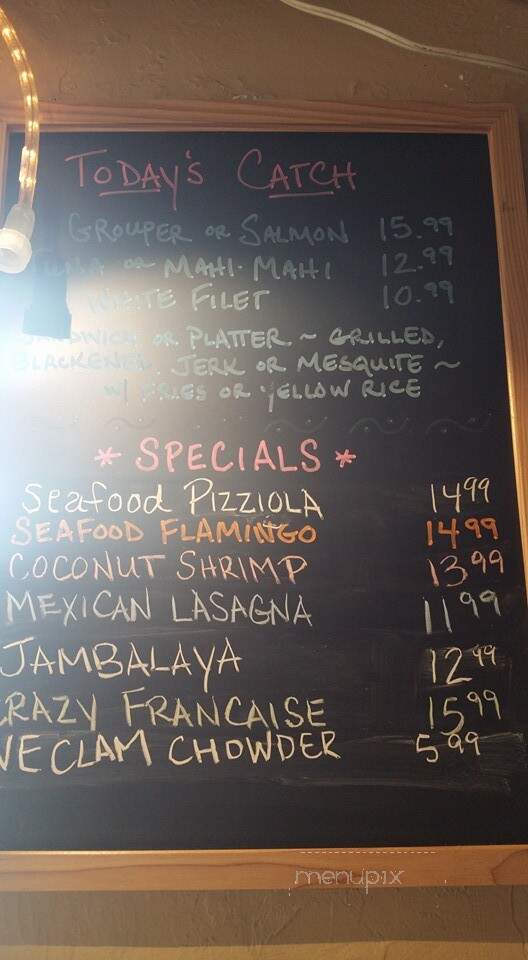 TODAY'S CATCH
GROUPER OR SALMON 15.99
OR MAHI-MAHI 12.99
WHITE FILET 10.99
SANDWICH OR PLATTER ~ GRILLED,
BLACKENED, JERK OR MESQUITE ~
W/ FRIES OR YELLOW RICE
* SPECIALS *
Seafood PIZZIOLA 14.99
SEAFOOD FLAMINGO 14.99
COCONUT SHRIMP 13.99
MEXICAN LASAGNA 11.99
JAMBALAYA 12.99
CRAZY FRANCAISE 15.99
CLAM CHOWDER 5.99
menupix